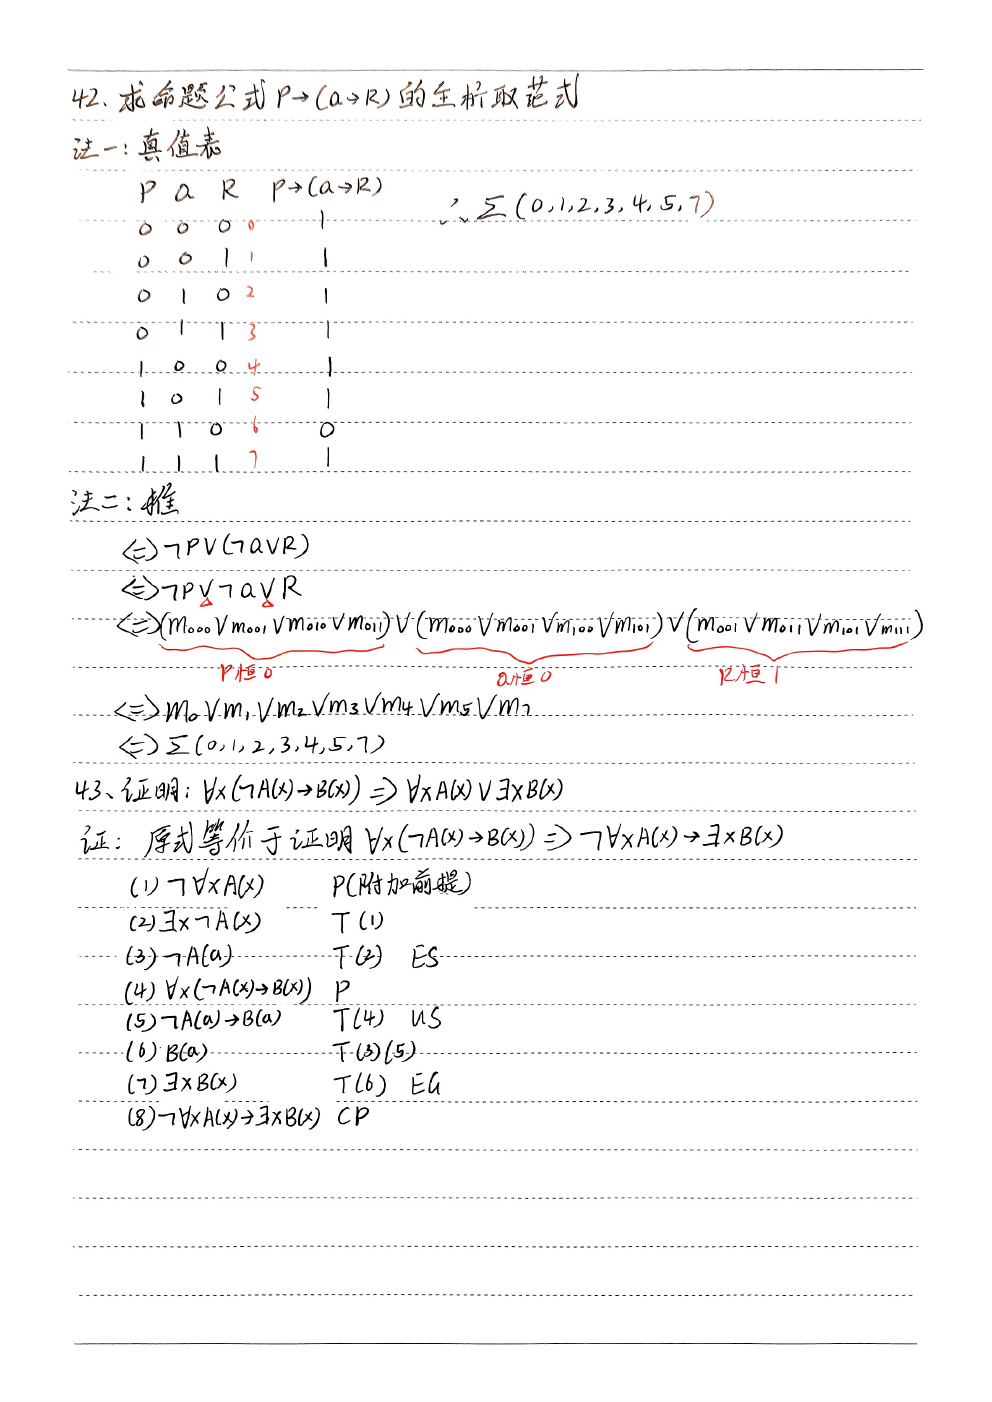 42、求命题公式 P→(Q→R)的主析取范式
法一：真值表
P Q R P→(Q→R)
∴ Σ(0,1,2,3,4,5,7)
0 0 0 0 1
0 0 1 1 1
0 1 0 2 1
0 1 1 3 1
1 0 0 4 1
1 0 1 5 1
1 1 0 6 0
1 1 1 7 1
法二：推
<=>¬P∨(¬Q∨R)
<=>¬P∨¬Q∨R
<=>(m₀₀₀∨m₀₀₁∨m₀₁₀∨m₀₁₁)∨(m₀₀₀∨m₀₀₁∨m₁₀₀∨m₁₀₁)∨(m₀₀₁∨m₀₁₁∨m₁₀₁∨m₁₁₁)
P恒0 Q恒0 R恒1
<=>m₀∨m₁∨m₂∨m₃∨m₄∨m₅∨m₇
<=>Σ(0,1,2,3,4,5,7)
43、证明：∀x(¬A(x)→B(x))=>∀xA(x)∨∃xB(x)
证：原式等价于证明∀x(¬A(x)→B(x))=>¬∀xA(x)→∃xB(x)
(1)¬∀xA(x) P(附加前提)
(2)∃x¬A(x) T(1)
(3)¬A(a) T(2) ES
(4)∀x(¬A(x)→B(x)) P
(5)¬A(a)→B(a) T(4) US
(6)B(a) T(3)(5)
(7)∃xB(x) T(6) EG
(8)¬∀xA(x)→∃xB(x) CP